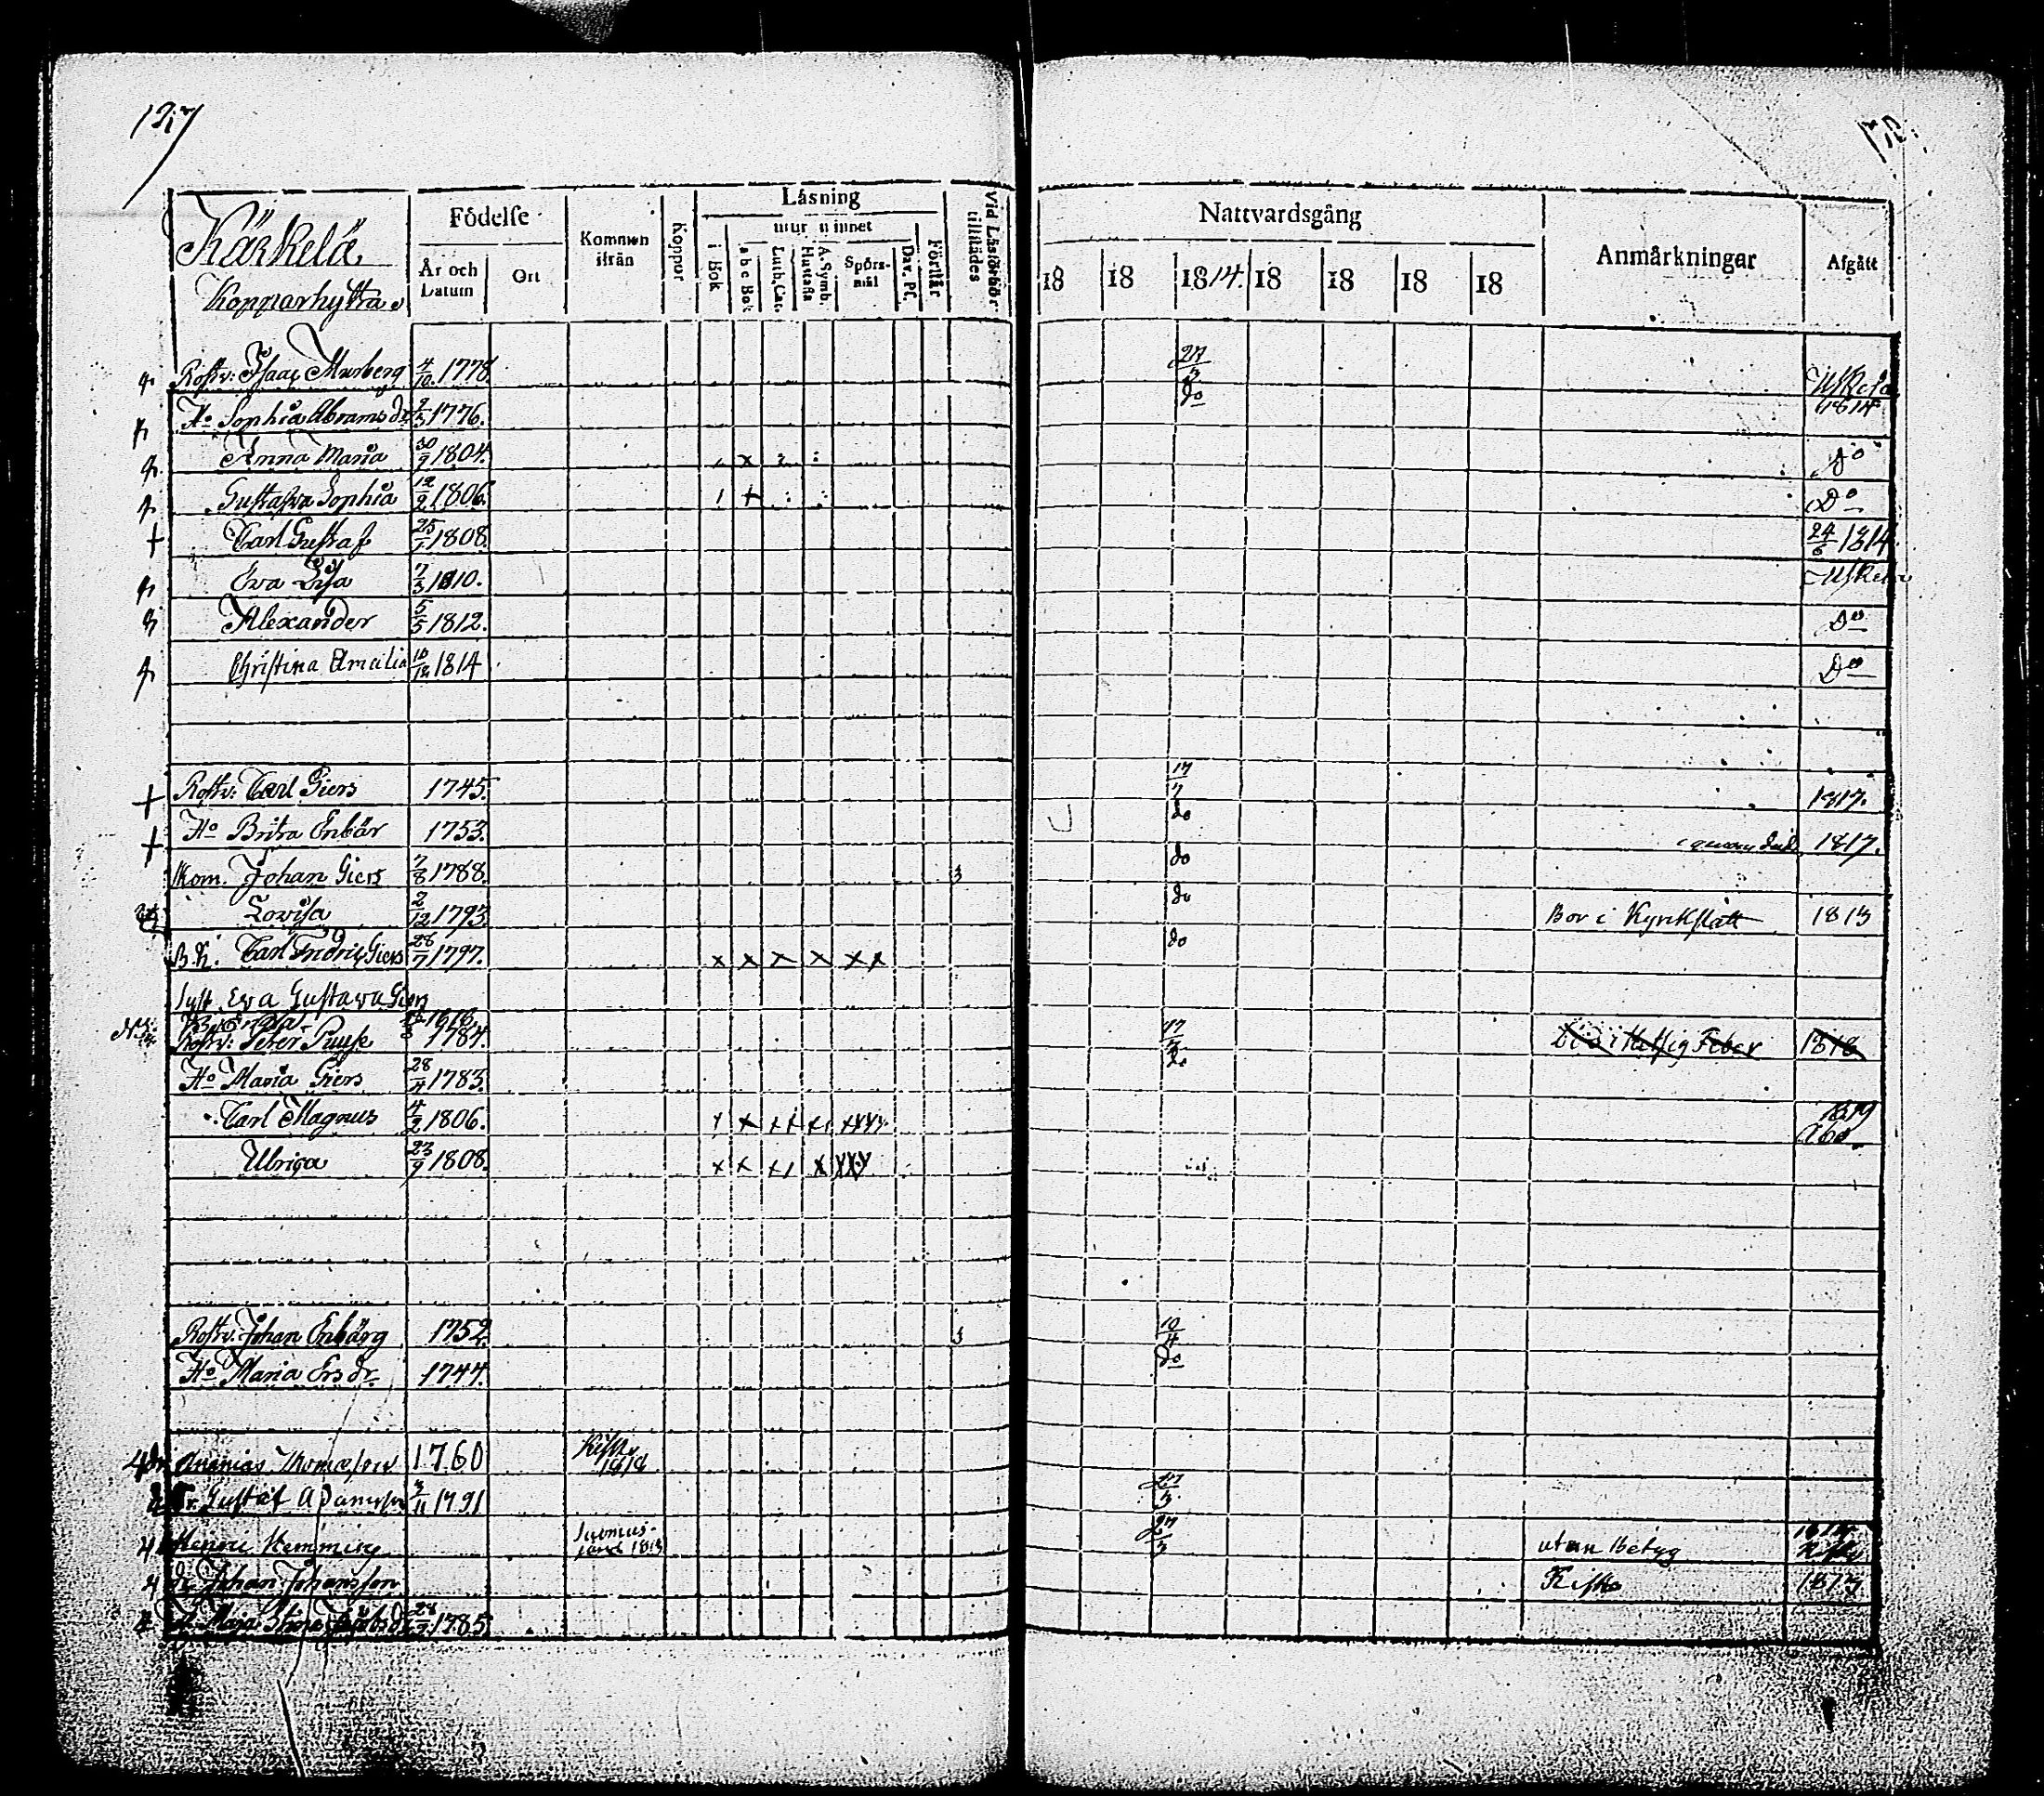 127
Kärkelä
Kopparhytta
Födelse
År och Datum
Ort
Kommen ifrån
Koppor
Låsning
i Bok
utur minnet
a b c Bok
Luth. Cat.
Hustafla
A. Symb.
Spörs-mål
Dav. Pſ.
Förstår
Vid Låsförhör tillstädes
Nattvardsgång
18 18 1814. 18 18 18 18
Anmårkningar
Afgått
Rostv: Isaac Murberg 4/10 1778. 27/3
Ho Sophia Abrams dr 1776. do 1814
Anna Maria 30/9 1804. x Do
Gustafva Sophia 12/2 1806. Do
Carl Gustaf 25/1 1808. 24/6 1814
Eva Lisa 7/3 1810.
Alexander 5/5 1812. Do
Christina Amalia 10/12 1814 Do
Rostv: Carl Giers 1745. 17/7 1817.
Ho Brita Enbär 1753. do 1817.
Kom. Johan Giers 7/8 1788. 3 do
Lovisa 2/12 1793. do Bor i Kyrkslätt 1813
B.K. Carl Fredric Giers 28/7 1797. x x x x x x do
Syst. Eva Gustava Giers
Rostv: Peter Puuse 1784. 17/7 Död i Hetsig Feber 1818
Ho Maria Giers 28/4 1783. do
Carl Magnus 4/2 1806. 1819 Åbo
Ulrica 23/9 1808.
Rostv: Johan Enbärg 1752. 3 10/4
Ho Maria Ers dr. 1744. do
Ananias Thomasson 1760 Kisko 1818
Dr. Gustaf Adamsson 3/11 1791
Henric Hemming Suomusjärvi 1813 27/3 utan Betyg
dr. Johan Johansson Kisko 1813
Maja Stina 28/7 1785